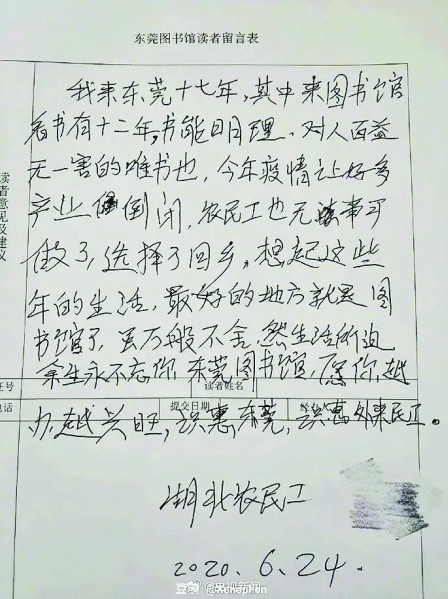 东莞图书馆读者留言表
读者意见及建议
我来东莞十七年,其中来图书馆
看书有十二年,书能明理、对人百益
无一害的唯书也,今年疫情让好多
产业倒闭,农民工也无事可
做了,选择了回乡,想起这些
年的生活,最好的地方就是图
书馆了,虽万般不舍,然生活所迫
余生永不忘你,东莞图书馆,愿你越
证号
读者姓名
办越兴旺,识惠东莞,识惠外来民工。
电话
提交日期
湖北农民工
2020、6、24.
央视新闻